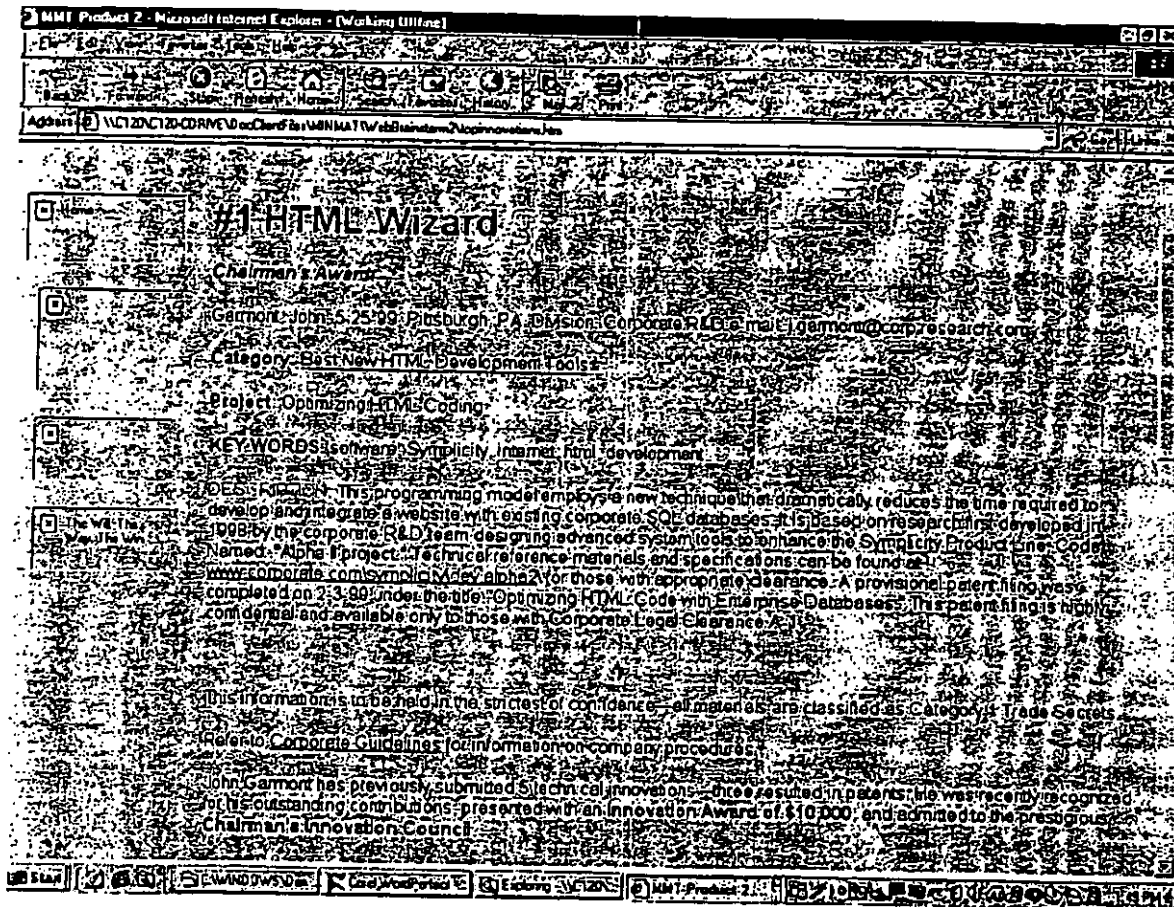 MMT Product 2 - Microsoft Internet Explorer - [Working Offline]
File Edit View Favorites Tools Help
Back Forward Stop Refresh Home Search Favorites History Mail Print
Address \\C120\C120-CDRIVE\DocClientFiles\MINMAT\WebBrainstorm2\topinnovations.htm Go Links
Home
#1 HTML Wizard
Chairman's Award
Garmont, John 5-25-99 Pittsburgh, PA Division: Corporate R&D e-mail: j.garmont@corp.research.com
Category: Best New HTML Development Tools
Project: Optimizing HTML Coding
KEY WORDS: software, Symplicity, Internet, html, development
DESCRIPTION: This programming model employs a new technique that dramatically reduces the time required to
develop and integrate a website with existing corporate SQL databases. It is based on research first developed in
1998 by the corporate R&D team designing advanced system tools to enhance the Symplicity Product Line. Code
Named: "Alpha II project." Technical reference materials and specifications can be found at
www.corporate.com/symplicity/dev.alpha2\ for those with appropriate clearance. A provisional patent filing was
completed on 2-3-99 under the title "Optimizing HTML Code with Enterprise Databases." This patent filing is highly
confidential and available only to those with Corporate Legal Clearance
The Will The
Way The Win
This information is to be held in the strictest of confidence—all materials are classified as Category Trade Secrets
Refer to Corporate Guidelines for information on company procedures.
John Garmont has previously submitted 5 technical innovations—three resulted in patents. He was recently recognized
for his outstanding contributions—presented with an Innovation Award of $10,000, and admitted to the prestigious
Chairman's Innovation Council
Start C:\WINDOWS\Des Corel WordPerfect Exploring - \\C120\ MMT Product 2 PM